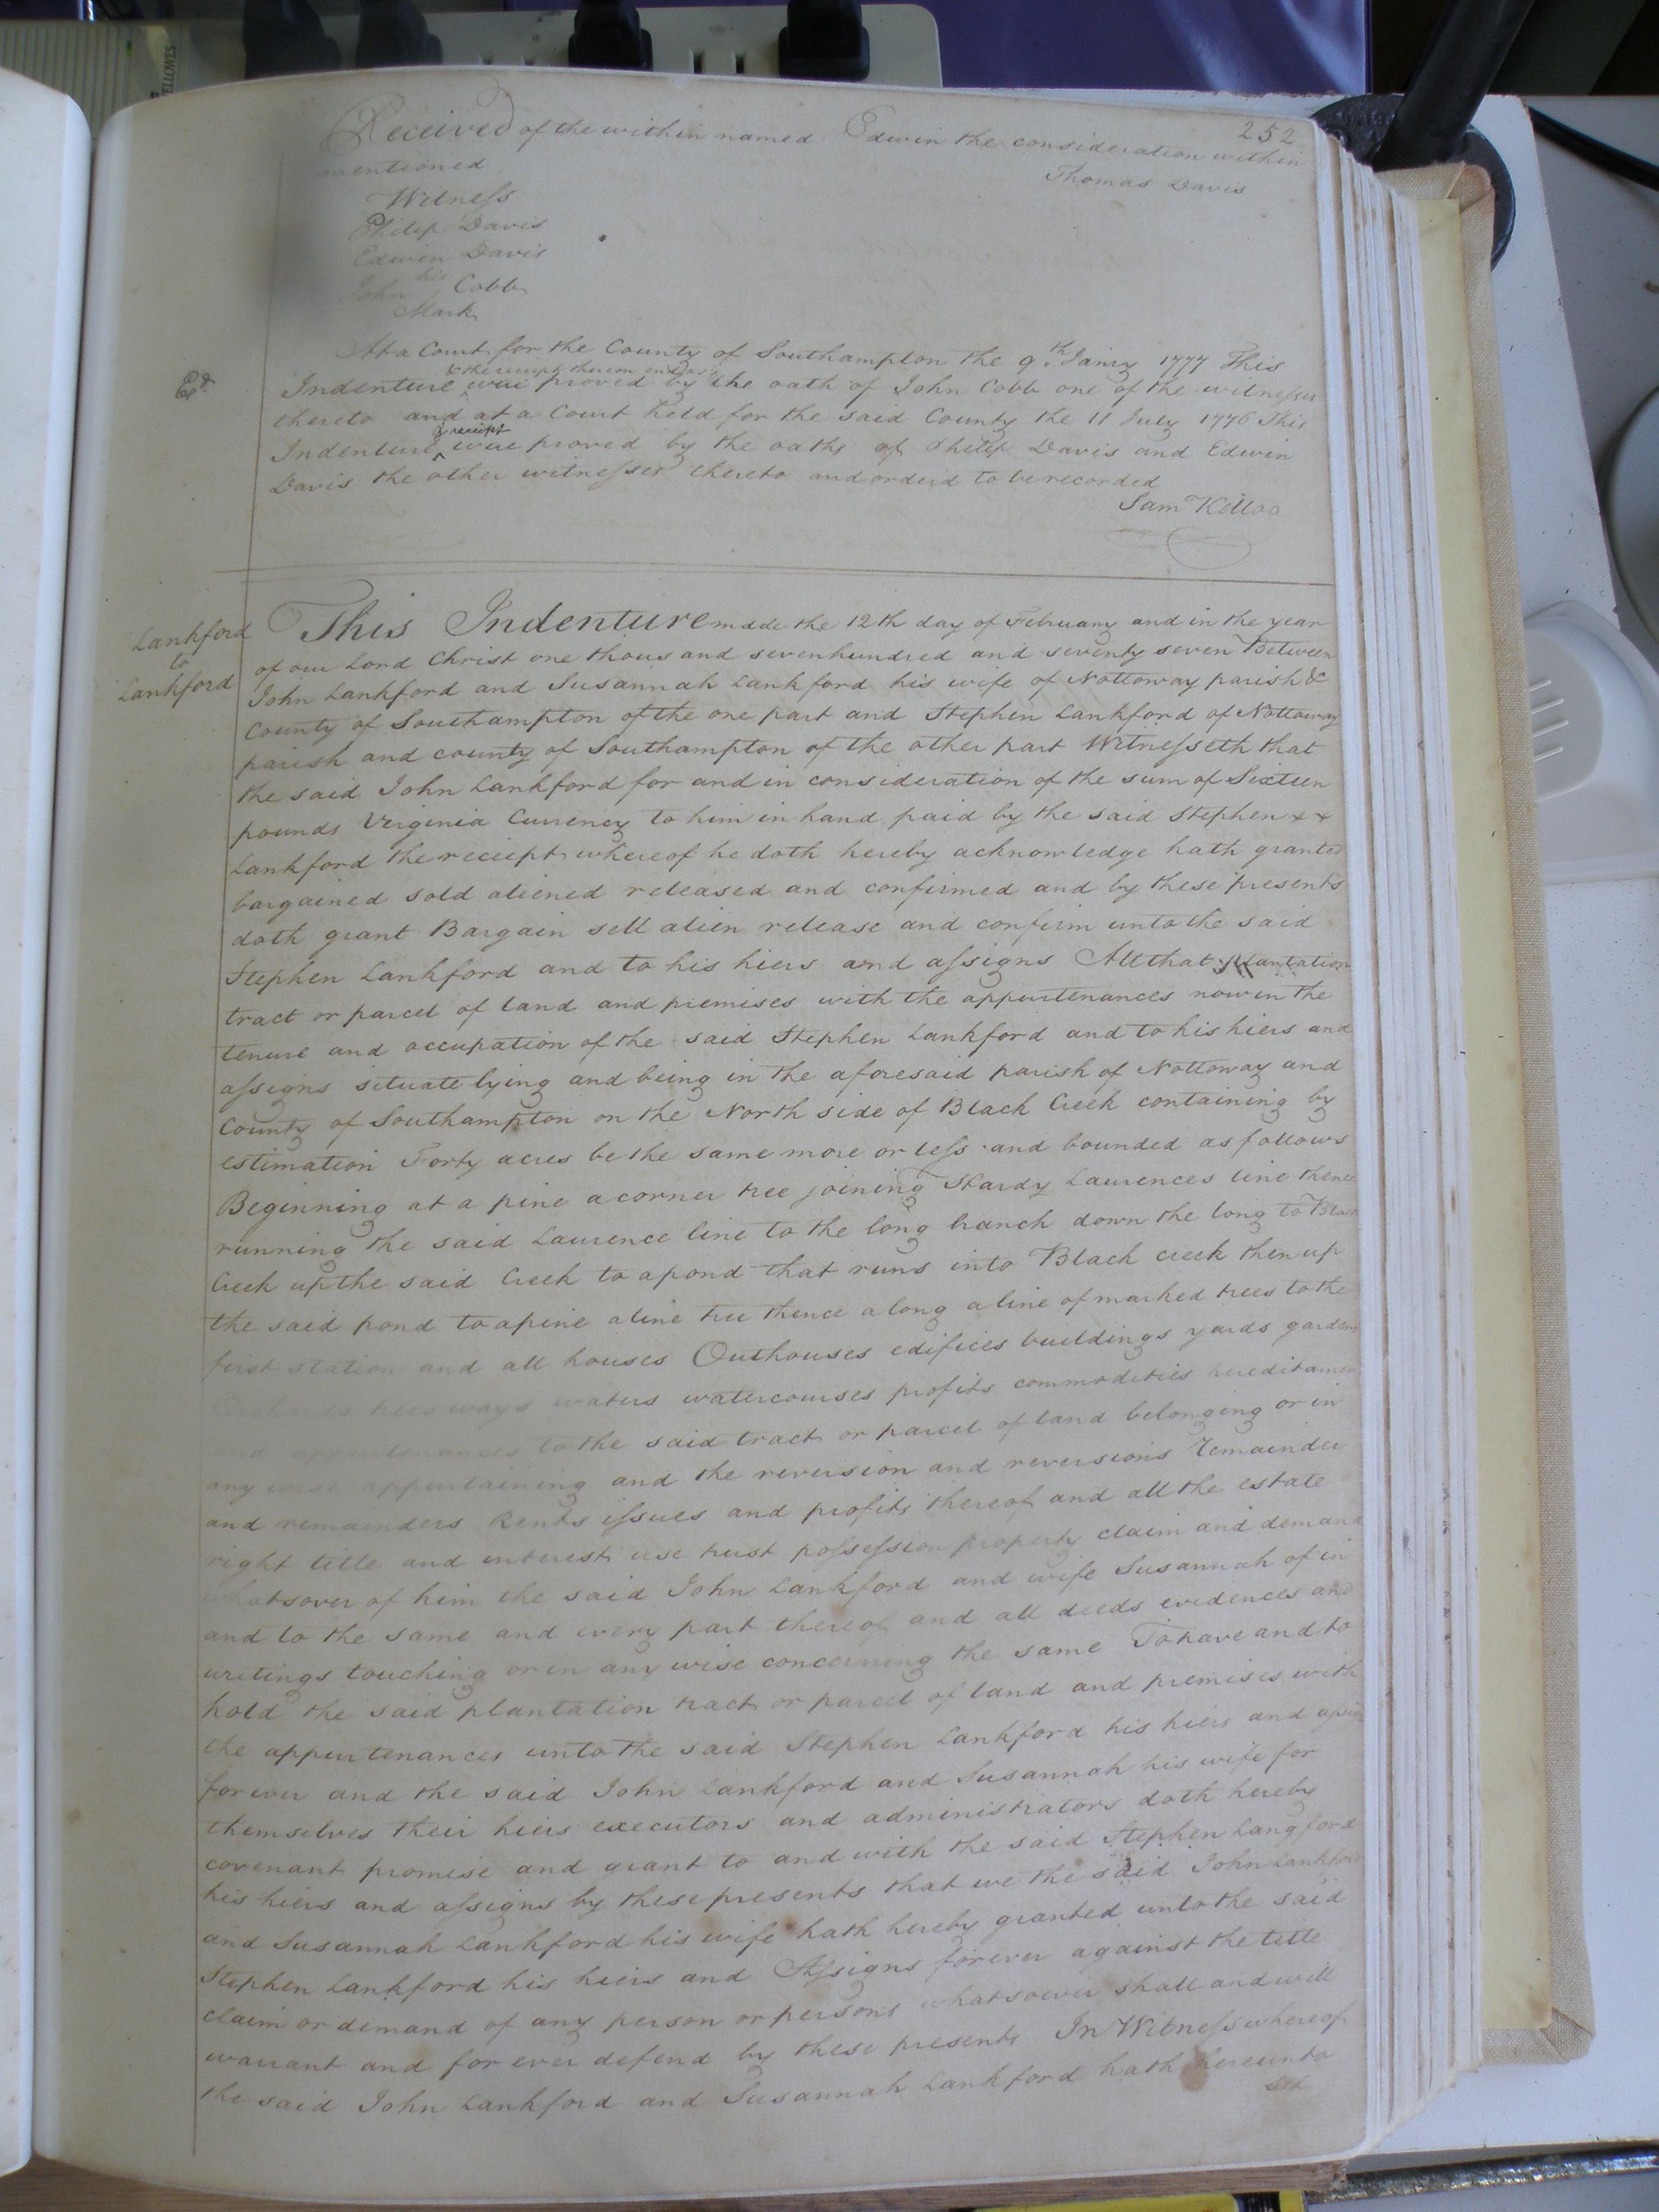 252
Received of the within named Edwin the consideration within
mentioned
Thomas Davis
Witness
Philip Davis
Edwin Davis
his
John Cobb
Mark
At a Court for the County of Southampton the 9th Janry 1777 This
& the receipt thereon endorsd
Indenture were proved by the oath of John Cobb one of the witnesses
thereto and at a Court held for the said County the 11 July 1776 This
& receipt
Indenture were proved by the oaths of Philip Davis and Edwin
Davis the other witnesses thereto and orderd to be recorded
Sam Kelloa
Ed
Lankford
to
Lankford
This Indenture made the 12th day of February and in the year
of our Lord Christ one thousand sevenhundred and seventy seven Between
John Lankford and Susannah Lankford his wife of Nottoway parish &
County of Southampton of the one part and Stephen Lankford of Nottoway
parish and county of Southampton of the other part Witnesseth that
the said John Lankford for and in consideration of the sum of Sixteen
pounds Virginia Currency to him in hand paid by the said Stephen x x
Lankford the receipt whereof he doth hereby acknowledge hath granted
bargained sold aliened released and confirmed and by these presents
doth grant Bargain sell alien release and confirm unto the said
Stephen Lankford and to his hiers and assigns All that plantation
tract or parcel of land and premises with the appurtenances now in the
tenure and occupation of the said Stephen Lankford and to his hiers and
assigns situate lying and being in the aforesaid parish of Nottoway and
County of Southampton on the North side of Black Creek containing by
estimation Forty acres be the same more or less and bounded as follows
Beginning at a pine a corner tree joining Hardy Laurences line thence
running the said Laurence line to the long branch down the long to Black
Creek up the said Creek to a pond that runs into Black creek then up
the said pond to a pine a line tree thence along a line of marked trees to the
first station and all houses Outhouses edifices buildings yards gardens
Orchards trees ways waters watercourses profits commodities hereditamen
and appurtenances to the said tract or parcel of land belonging or in
any wise appertaining and the reversion and reversions remainder
and remainders Rents issues and profits thereof and all the estate
right title and interest use trust possession property claim and demand
whatsover of him the said John Lankford and wife Susannah of in
and to the same and every part thereof and all deeds evidences and
writings touching or in any wise concerning the same To have and to
hold the said plantation tract or parcel of land and premises with
the appurtenances unto the said Stephen Lankford his hiers and assigns
forever and the said John Lankford and Susannah his wife for
themselves their hiers executors and administrators doth hereby
covenant promise and grant to and with the said Stephen Langford
his hiers and assigns by these presents that we the said John Lankford
and Susannah Lankford his wife hath hereby granted unto the said
Stephen Lankford his hiers and Assigns forever against the title
claim or demand of any person or persons whatsoever shall and will
warrant and for ever defend by these presents In Witness whereof
the said John Lankford and Susannah Lankford hath hereunto
set